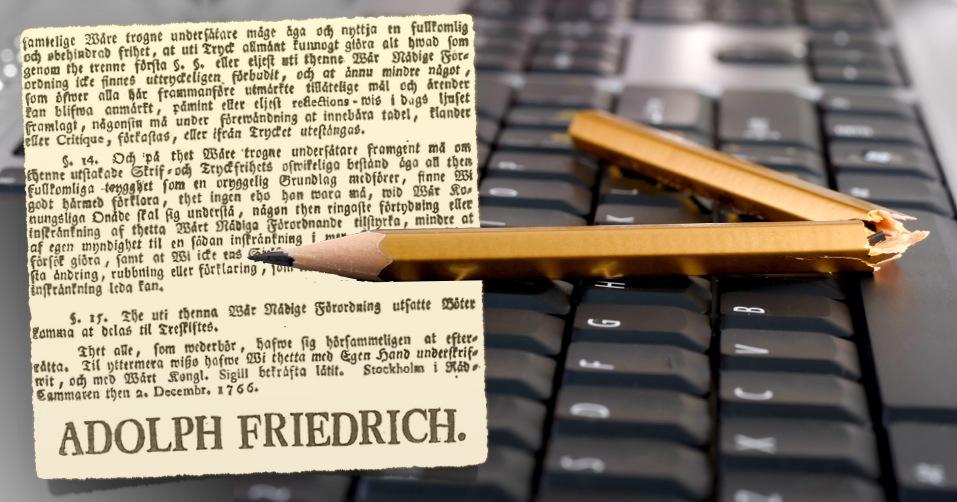 samtelige Wåre trogne undersåtare måge äga och nyttja en fullkomlig
och obehindrad frihet, at uti Tryck allmänt kunnogt göra alt hwad som
genom the trenne första §. §. eller eljest uti thenne Wår Nådige För-
ordning icke finnes uttryckeligen förbudit, och at ännu mindre något,
som öfwer alla här frammanföre utmärkte tillåtelige mål och ärender
kan blifwa anmärkt, påmint eller eljest reflections-wis i dags ljuset
framlagt, någonsin må under förewändning at innebära tadel, klander
eller Critique, förkastas, eller ifrån Trycket utestängas.
§. 14. Och på thet Wåre trogne undersåtare framgent må om
thenne utstakade Skrif- och Tryckfrihets oswikeliga bestånd äga all then
fullkomliga trygghet som en oryggelig Grundlag medförer, finne Wi
godt härmed förklara, thet ingen eho han wara må, wid Wår Ko-
nungsliga Onåde skal sig understå, någon then ringaste förtydning eller
inskränkning af thetta Wårt Nådiga Förordnande tilstyrka, mindre at
af egen myndighet til en sådan inskränkning i
försök göra, samt at Wi icke ens
sta ändring, rubbning eller förklaring, som
inskränkning leda kan.
§. 15. The uti thenna Wår Nådige Förordning utsatte Böter
komma at delas til Treskiftes.
Thet alle, som wederbör, hafwe sig hörsammeligen at efter-
rätta. Til yttermera wisso hafwe Wi thetta med Egen Hand underskrif-
wit, och med Wårt Kongl. Sigill bekräfta låtit. Stockholm i Råd-
Cammaren then 2. Decembr. 1766.
ADOLPH FRIEDRICH.
H
G
F
D
S
B
V
C
X